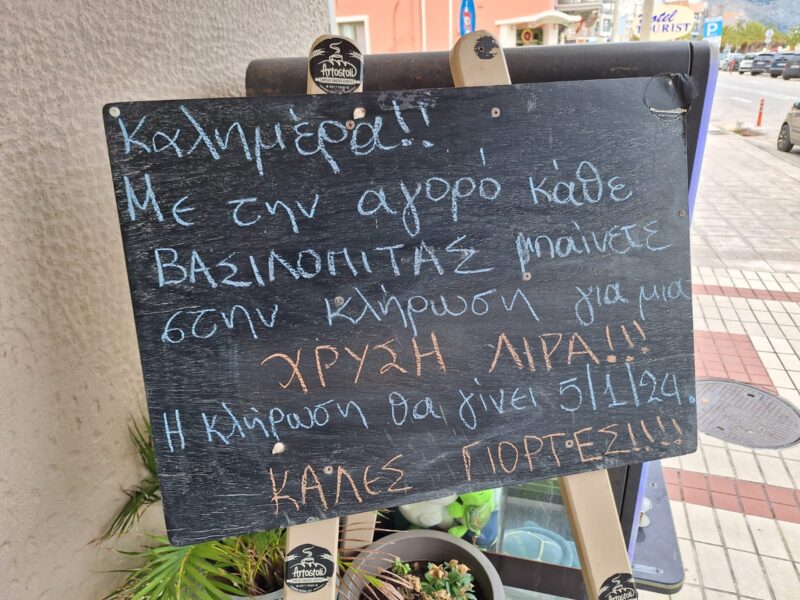 Artostoil
Hotel
TOURIST
P
Καλημέρα!!
Με την αγορά κάθε
ΒΑΣΙΛΟΠΙΤΑΣ μπαίνετε
στην κλήρωση για μια
ΧΡΥΣΗ ΛΙΡΑ!!!
Η κλήρωση θα γίνει 5/1/24.
ΚΑΛΕΣ ΓΙΟΡΤΕΣ!!!!
Artostoil
Artostoil